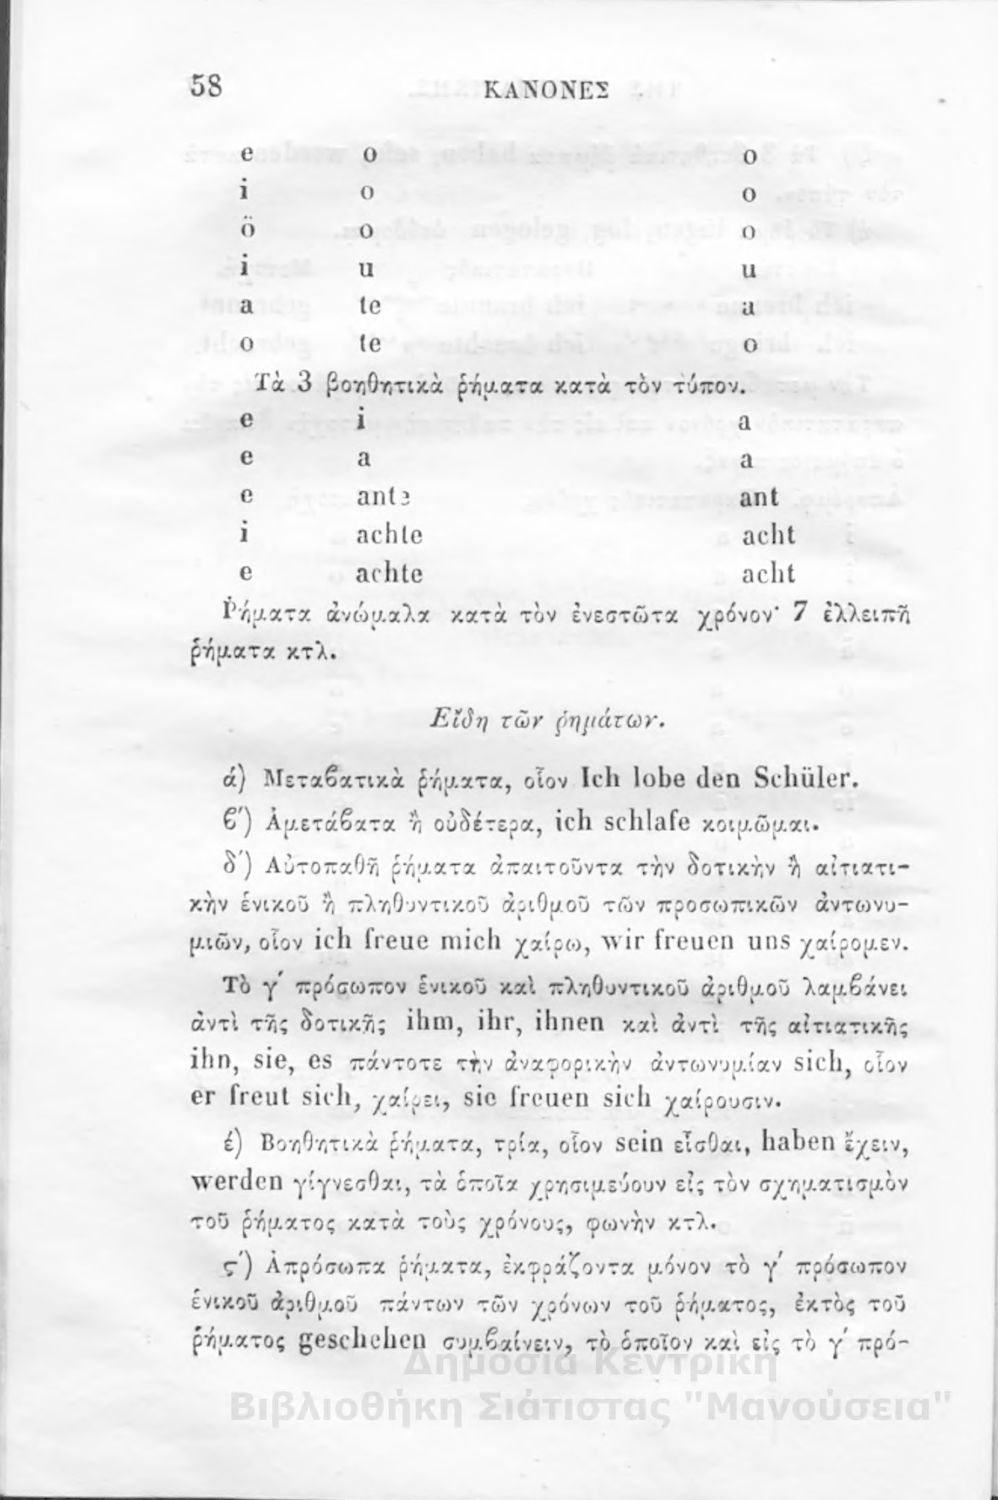 58 ΚΑΝΟΝΕΣ
e o o
i o o
ö o o
i u u
a te a
o te o
Τὰ 3 βοηθητικὰ ῥήματα κατὰ τὸν τύπον.
e i a
e a a
e ante ant
i achte acht
e achte acht
Ῥήματα ἀνώμαλα κατὰ τὸν ἐνεστῶτα χρόνον· 7 ἐλλειπῆ
ῥήματα κτλ.
Εἴδη τῶν ῥημάτων.
ά) Μεταϐατικὰ ῥήματα, οἷον Ich lobe den Schüler.
ϐ') Ἀμετάϐατα ἢ οὐδέτερα, ich schlafe κοιμῶμαι.
δ') Αὐτοπαθῆ ῥήματα ἀπαιτοῦντα τὴν δοτικὴν ἢ αἰτιατι-
κὴν ἑνικοῦ ἢ πληθυντικοῦ ἀριθμοῦ τῶν προσωπικῶν ἀντωνυ-
μιῶν, οἷον ich freue mich χαίρω, wir freuen uns χαίρομεν.
Τὸ γ' πρόσωπον ἑνικοῦ καὶ πληθυντικοῦ ἀριθμοῦ λαμϐάνει
ἀντὶ τῆς δοτικῆς ihm, ihr, ihnen καὶ ἀντὶ τῆς αἰτιατικῆς
ihn, sie, es πάντοτε τὴν ἀναφορικὴν ἀντωνυμίαν sich, οἷον
er freut sich, χαίρει, sie freuen sich χαίρουσιν.
έ) Βοηθητικὰ ῥήματα, τρία, οἷον sein εἶσθαι, haben ἔχειν,
werden γίγνεσθαι, τὰ ὁποῖα χρησιμεύουν εἰς τὸν σχηματισμὸν
τοῦ ῥήματος κατὰ τοὺς χρόνους, φωνὴν κτλ.
ς') Ἀπρόσωπα ῥήματα, ἐκφράζοντα μόνον τὸ γ' πρόσωπον
ἑνικοῦ ἀριθμοῦ πάντων τῶν χρόνων τοῦ ῥήματος, ἐκτὸς τοῦ
ῥήματος geschehen συμϐαίνειν, τὸ ὁποῖον καὶ εἰς τὸ γ' πρό-
Δημόσια Κεντρική
Βιβλιοθήκη Σιάτιστας "Μανούσεια"